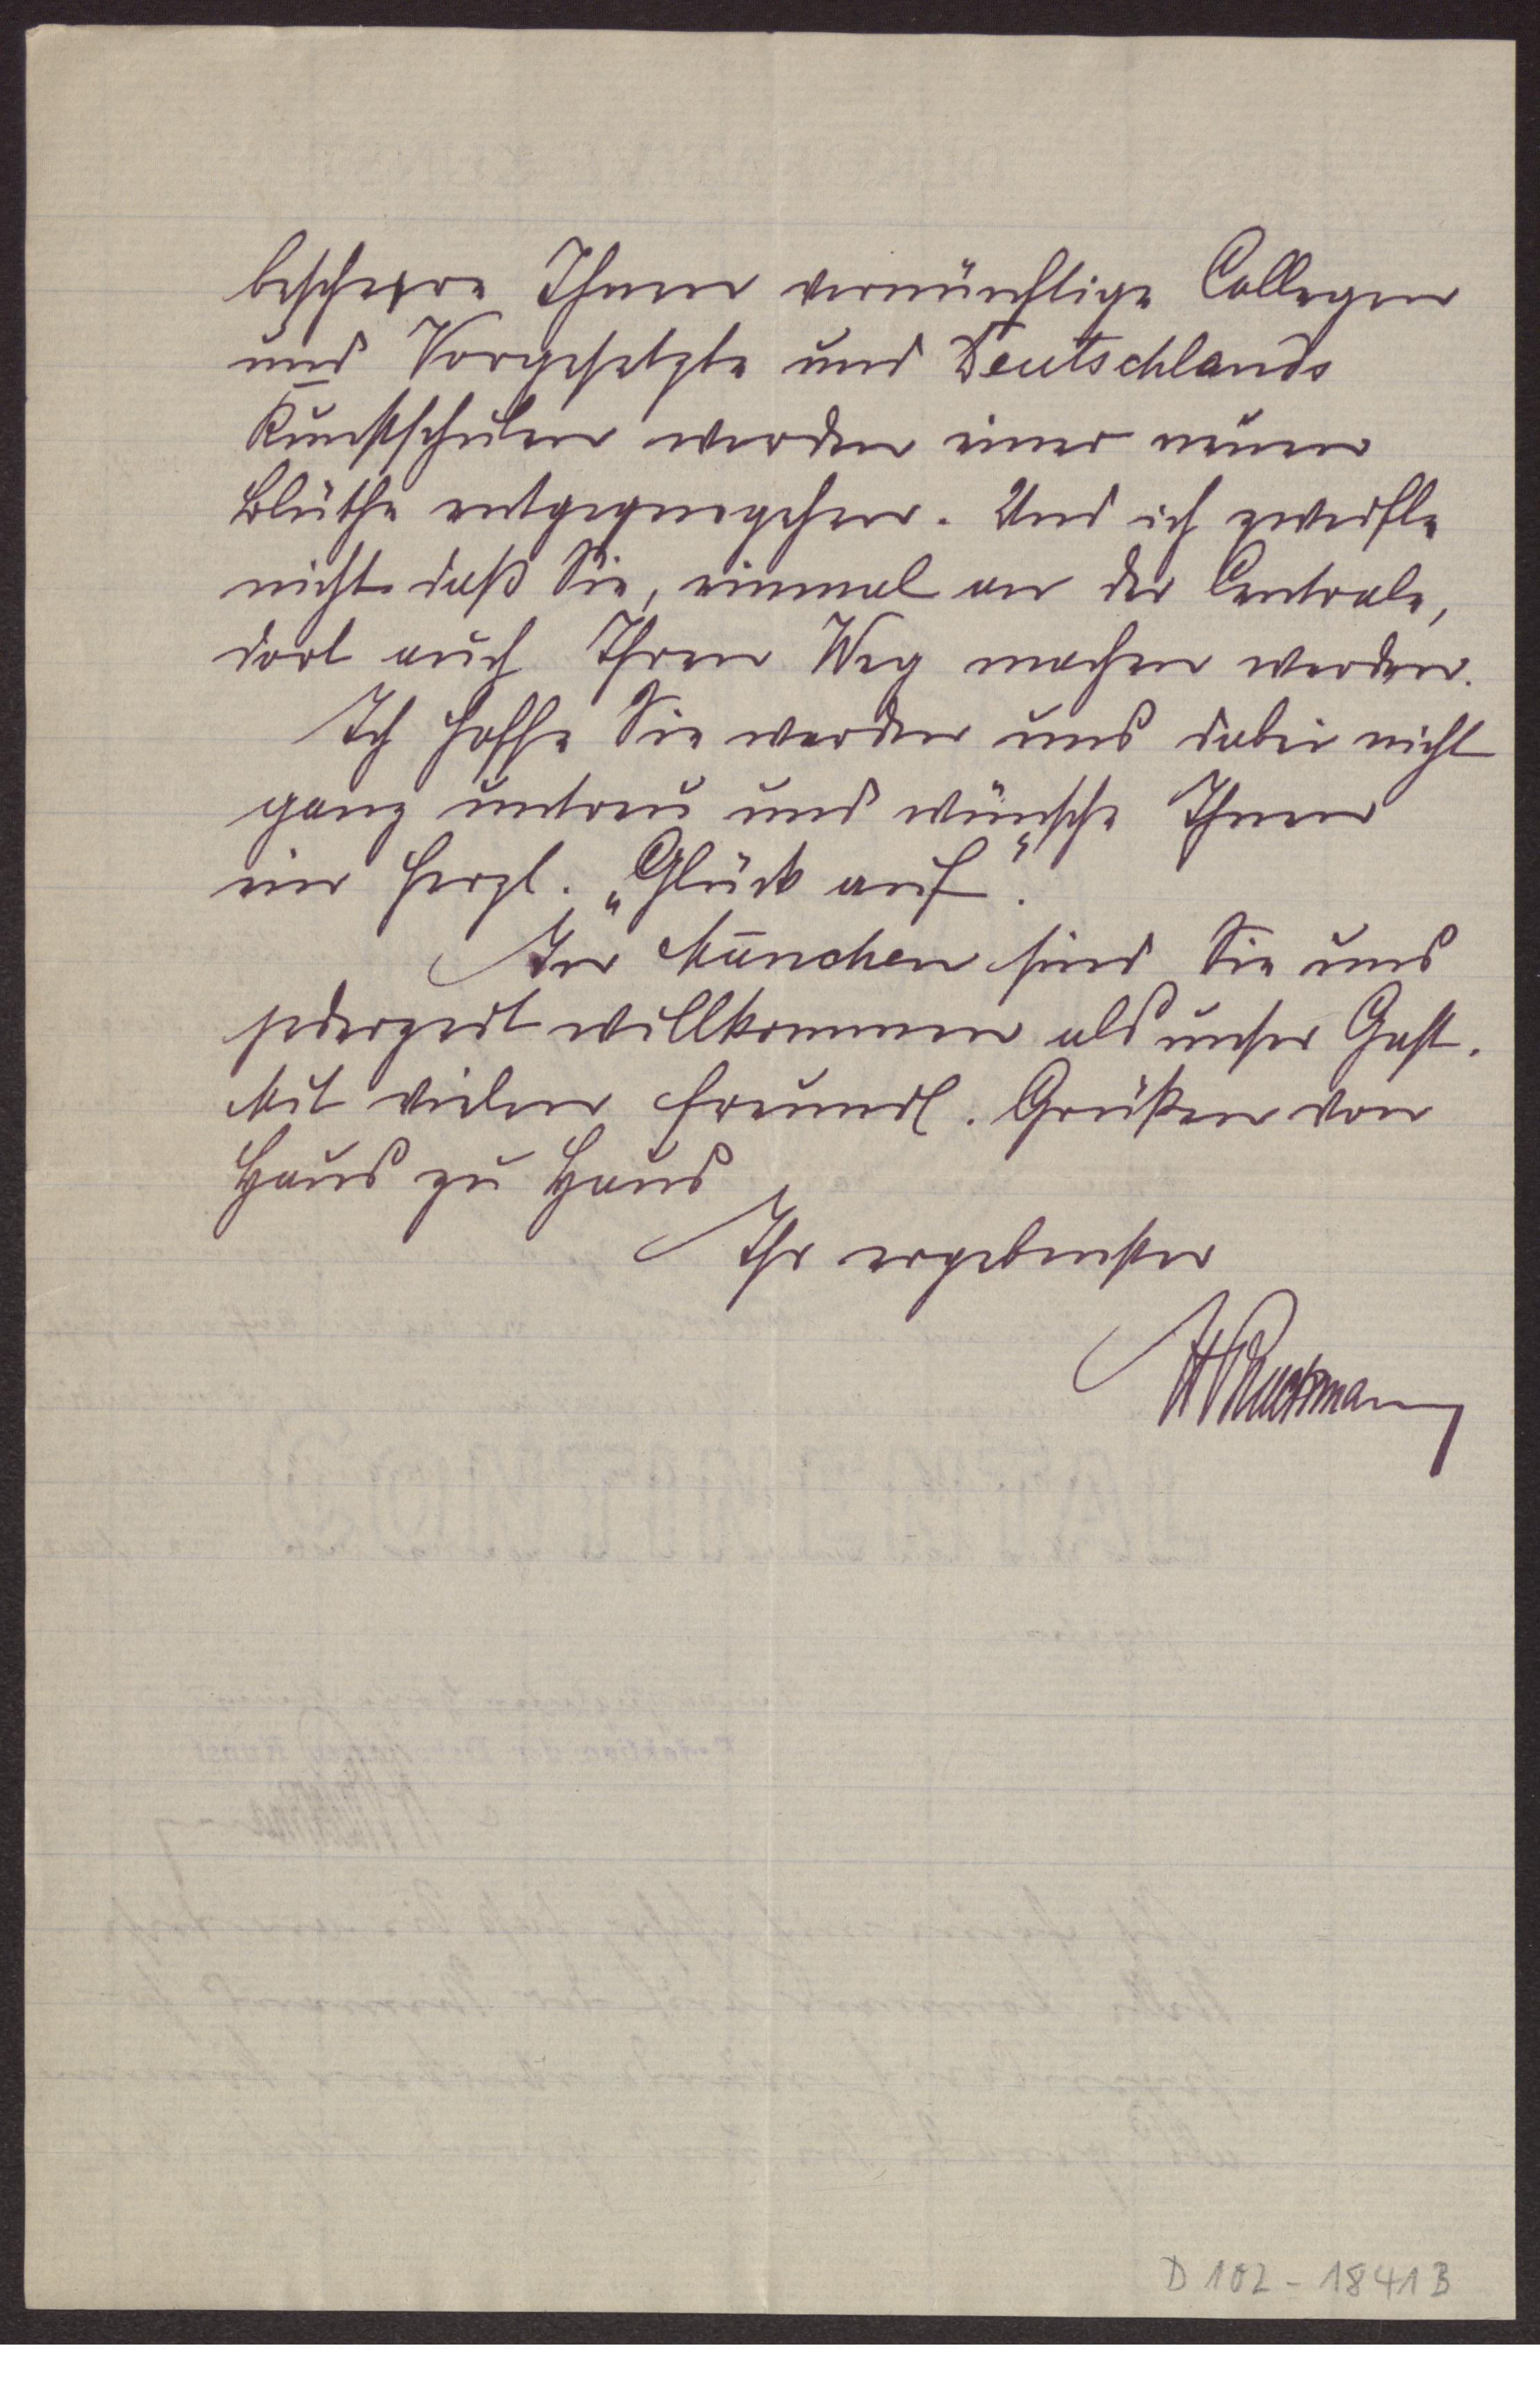 beschere Ihnen vernünftige Collegen
und Vorgesetzte und Deutschlands
Kunstschulen werden einer neuen
Blüthe entgegengehen. Und ich zweifle
nicht daß Sie, einmal an der Centrale,
dort auch Ihren Weg machen werden.
Ich hoffe Sie werden uns dabei nicht
ganz untreu und wünsche Ihnen
ein herzl. „Glück auf".
In München sind Sie uns
jederzeit willkommen als unser Gast.
Mit vielen freundl. Grüßen von
Haus zu Haus
Ihr ergebenster
HBruckmann
D 102 - 1841 B